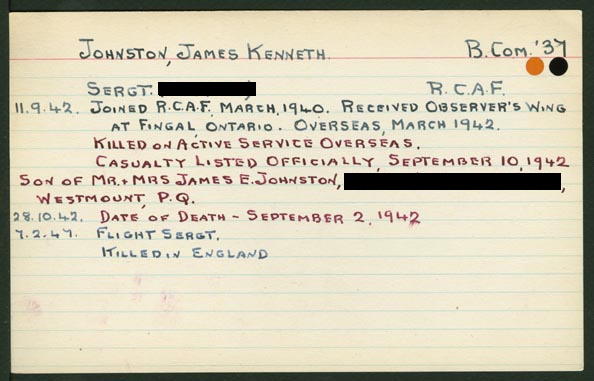 JOHNSTON, JAMES KENNETH. B.COM. '37
SERGT. R.C.A.F.
11.9.42. JOINED R.C.A.F. MARCH, 1940. RECEIVED OBSERVER'S WING
AT FINGAL, ONTARIO. OVERSEAS, MARCH 1942.
KILLED ON ACTIVE SERVICE OVERSEAS.
CASUALTY LISTED OFFICIALLY, SEPTEMBER 10, 1942
SON OF MR. + MRS JAMES E. JOHNSTON, ,
WESTMOUNT, P.Q.
28.10.42. DATE OF DEATH - SEPTEMBER 2, 1942
7.2.47. FLIGHT SERGT.
KILLED IN ENGLAND